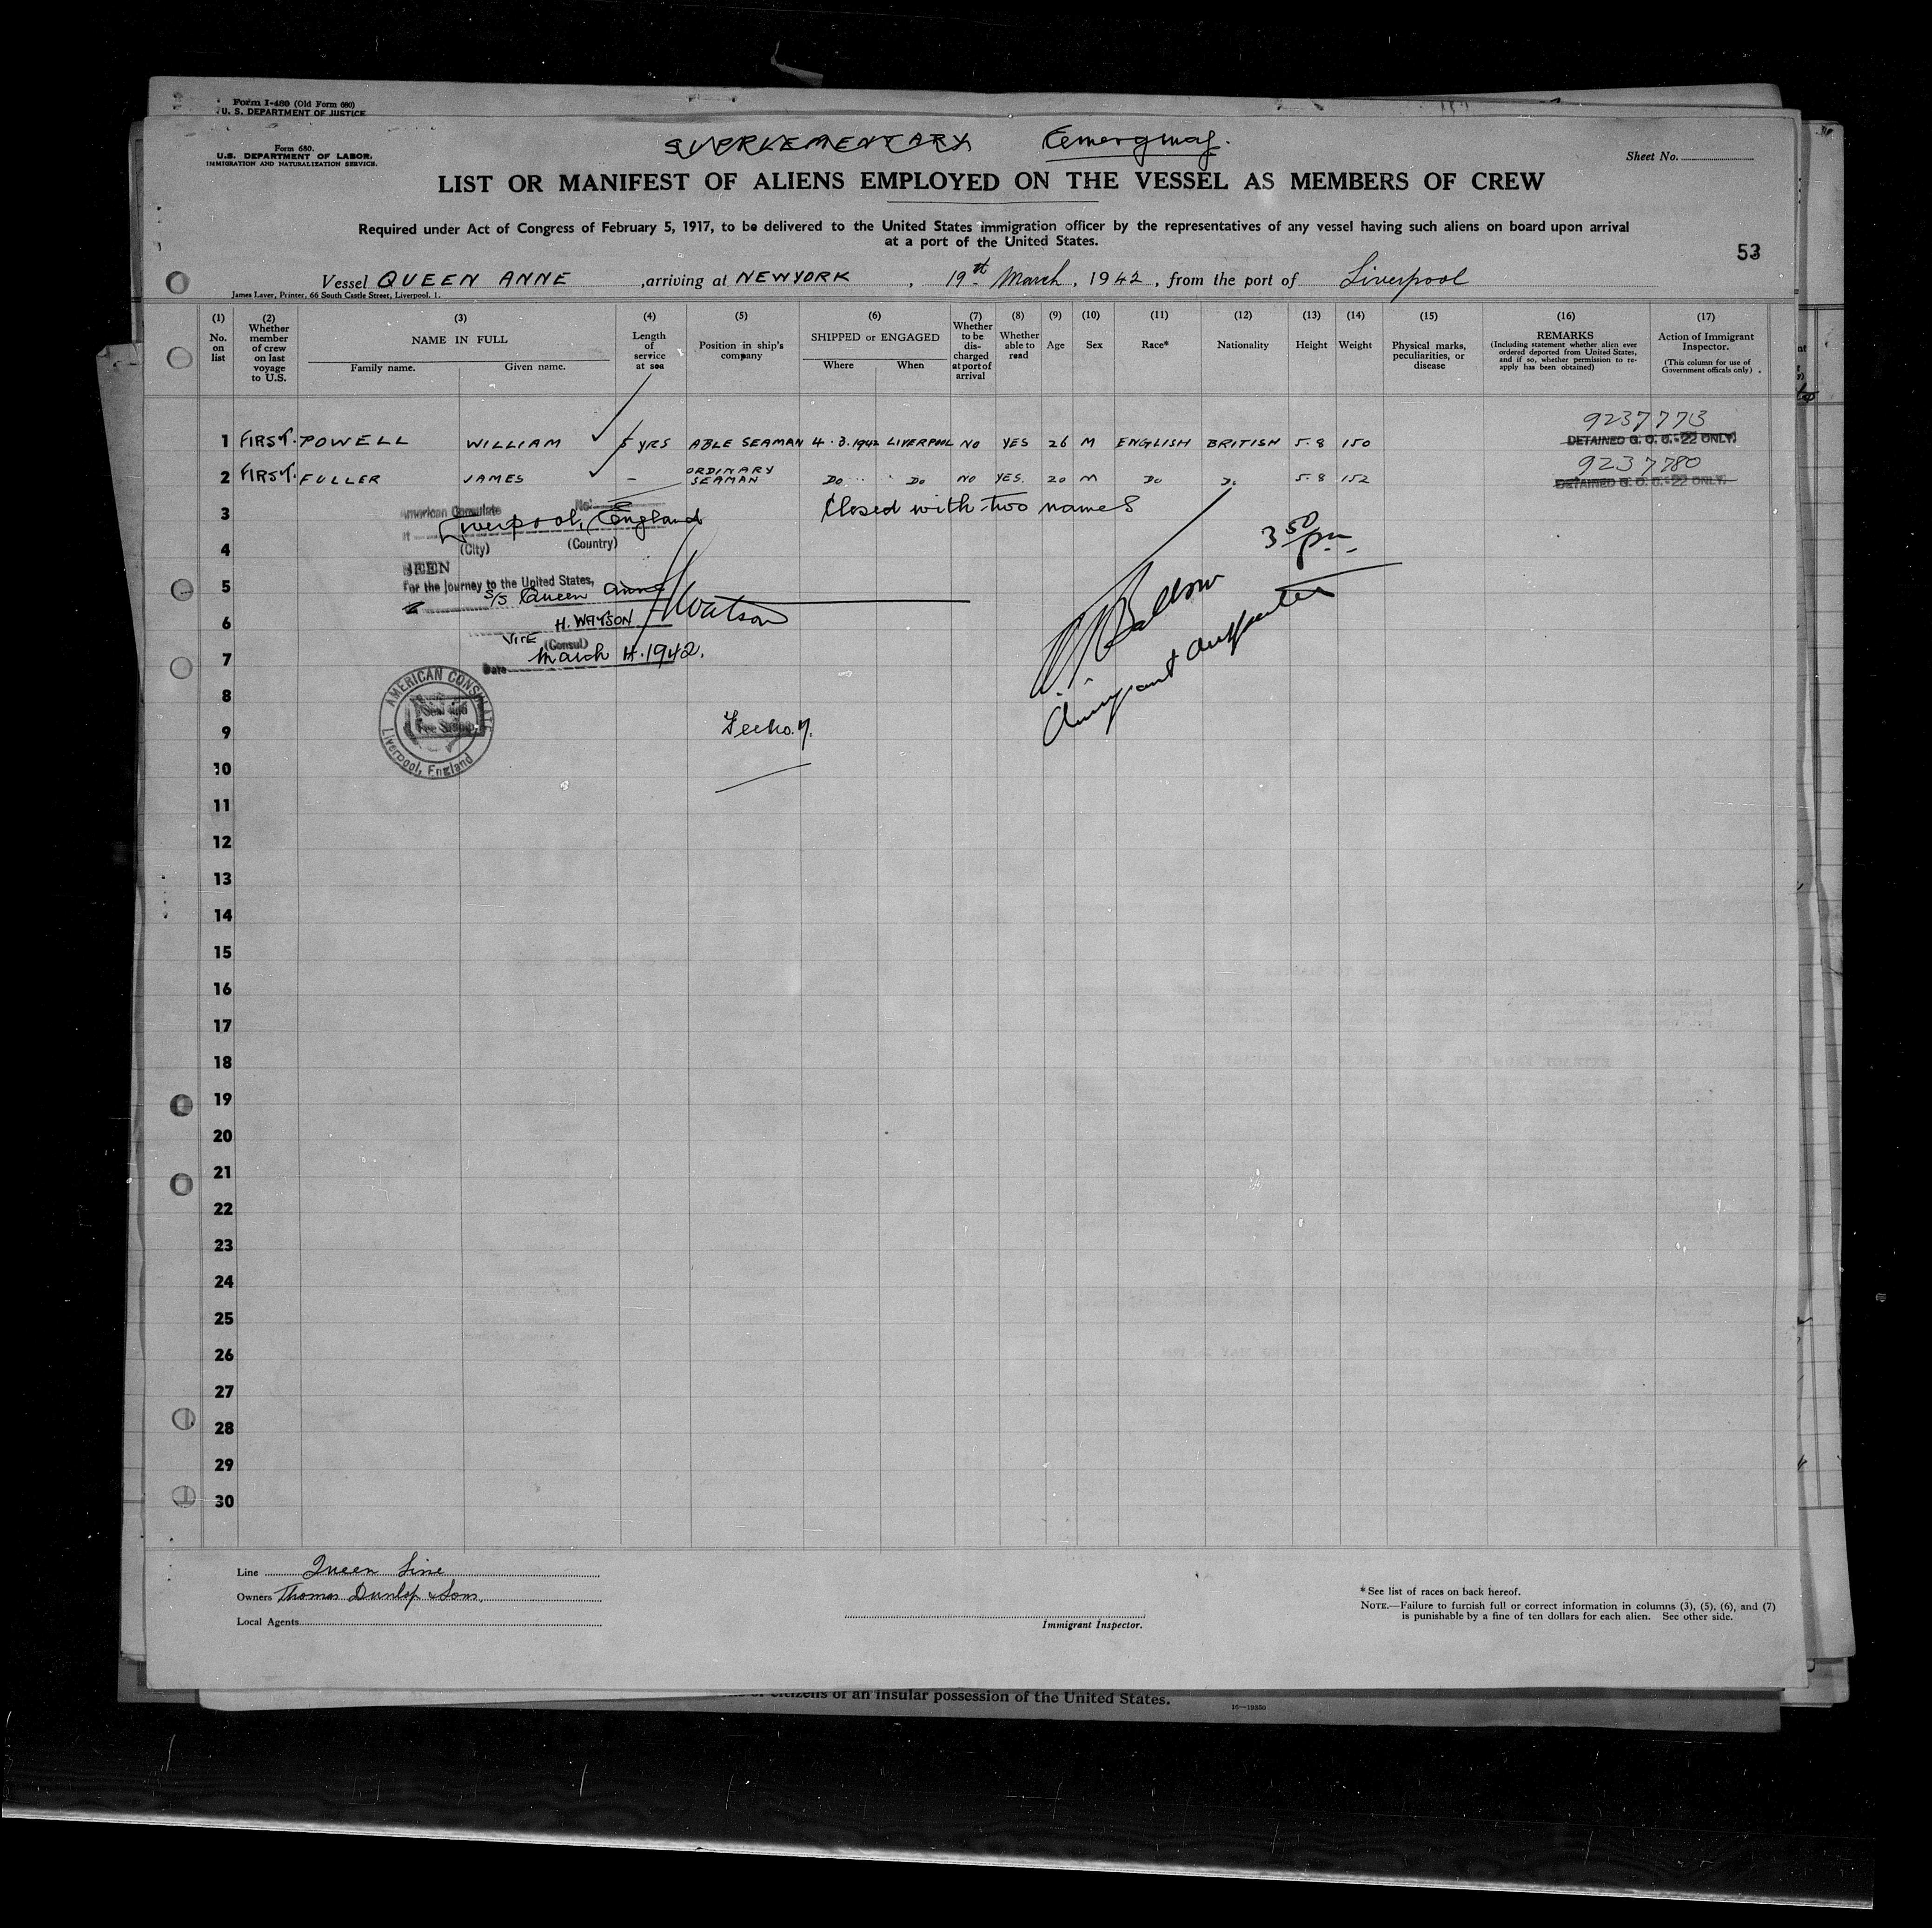 Form I-480 (Old Form 680)
U. S. DEPARTMENT OF JUSTICE
Form 680.
U.S. DEPARTMENT OF LABOR.
IMMIGRATION AND NATURALIZATION SERVICE.
SUPPLEMENTARY
Sheet No.
LIST OR MANIFEST OF ALIENS EMPLOYED ON THE VESSEL AS MEMBERS OF CREW
Required under Act of Congress of February 5, 1917, to be delivered to the United States immigration officer by the representatives of any vessel having such aliens on board upon arrival
at a port of the United States.
53
Vessel QUEEN ANNE, arriving at NEW YORK, 19th March, 1942, from the port of Liverpool
James Laver, Printer, 66 South Castle Street, Liverpool. 1.
(1) No. on list
(2) Whether member of crew on last voyage to U.S.
(3) NAME IN FULL
Family name. Given name.
(4) Length of service at sea
(5) Position in ship's company
(6) SHIPPED or ENGAGED
Where When
(7) Whether to be discharged at port of arrival
(8) Whether able to read
(9) Age
(10) Sex
(11) Race*
(12) Nationality
(13) Height
(14) Weight
(15) Physical marks, peculiarities, or disease
(16) REMARKS
(Including statement whether alien ever ordered deported from United States, and if so, whether permission to re-apply has been obtained)
(17) Action of Immigrant Inspector.
(This column for use of Government officals only)
9237773
1 FIRST. POWELL WILLIAM 5 YRS ABLE SEAMAN 4.3.1942 LIVERPOOL NO YES 26 M ENGLISH BRITISH 5.8 150 DETAINED G. O. C.-22 ONLY.
9237780
2 FIRST. FULLER JAMES - ORDINARY SEAMAN Do Do NO YES. 20 M Do Do 5.8 152 DETAINED G. O. C.-22 ONLY.
3
American Consulate No.
Liverpool, England
Closed with two names
(City) (Country)
3 50 pm
4
SEEN
5
For the journey to the United States,
S/S Queen Anne
H Watson
6
H. WATSON
VICE (Consul)
7
Date March 4. 1942.
8
AMERICAN CONSULATE
Liverpool, England
9
10
11
12
13
14
15
16
17
18
19
20
21
22
23
24
25
26
27
28
29
30
Line Queen Line
Owners Thomas Dunlop & Sons.
Local Agents
Immigrant Inspector.
*See list of races on back hereof.
NOTE.—Failure to furnish full or correct information in columns (3), (5), (6), and (7)
is punishable by a fine of ten dollars for each alien. See other side.
citizens of an insular possession of the United States.